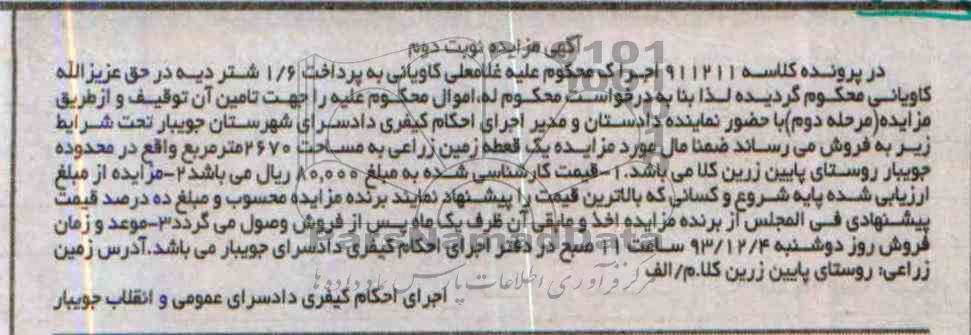 آگهی مزایده نوبت دوم
در پرونده کلاسه ۹۱۱۲۱۱ اجرا ک محکوم علیه غلامعلی کاویانی به پرداخت ۱/۶ شتر دیه در حق عزیزالله
کاویانی محکوم گردیده لذا بنا به درخواست محکوم له، اموال محکوم علیه را جهت تامین آن توقیف و ازطریق
مزایده(مرحله دوم)با حضور نماینده دادستان و مدیر اجرای احکام کیفری دادسرای شهرستان جویبار تحت شرایط
زیر به فروش می رساند ضمنا مال مورد مزایده یک قطعه زمین زراعی به مساحت ۲۶۷۰مترمربع واقع در محدوده
جویبار روستای پایین زرین کلا می باشد.۱-قیمت کارشناسی شده به مبلغ ۸۰,۰۰۰ ریال می باشد۲-مزایده از مبلغ
ارزیابی شده پایه شروع و کسانی که بالاترین قیمت را پیشنهاد نمایند برنده مزایده محسوب و مبلغ ده درصد قیمت
پیشنهادی فی المجلس از برنده مزایده اخذ و مابقی آن ظرف یک ماه پس از فروش وصول می گردد۳-موعد و زمان
فروش روز دوشنبه ۹۳/۱۲/۴ ساعت ۱۱ صبح در دفتر اجرای احکام کیفری دادسرای جویبار می باشد.آدرس زمین
زراعی: روستای پایین زرین کلا.م/الف
اجرای احکام کیفری دادسرای عمومی و انقلاب جویبار
مرکز فرآوری اطلاعات پارس نماد داده ها